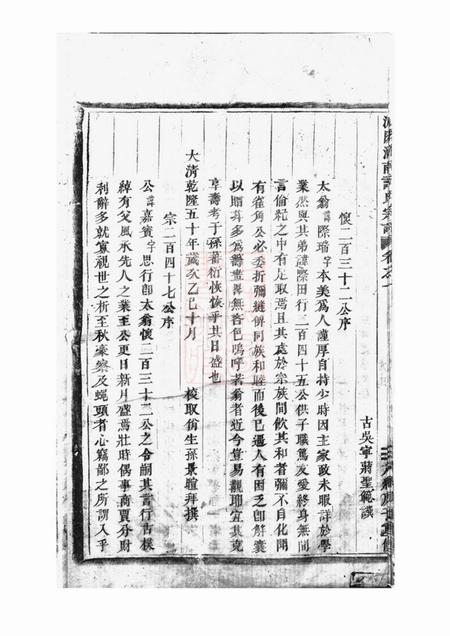 懷二百三十二公序
古吳寧蔣聖範謨
太翁諱際瑞字本美為人謹厚自持少時因主家政未暇詳於學
業然與其弟諱際田行二百四十五公供子職篤友愛終身無間
言倫紀之中有足取焉且其處於宗族間飲其和者彌不自化間
有雀角公必委折彌縫俾同族和睦而後已遇人有困乏即解囊
以贈尋多為籌畫無吝色嗚呼若翁者近今豈易覯耶宜其克
享壽考子孫蕃衍恢恢乎其日盛也
大清乾隆五十年歲次乙巳十月 梭取佾生孫景暄拜撰
宗二百四十七公序
公諱嘉賓字思行即太翁懷二百三十二公之令嗣其言行古樸
綽有父風承先人之業至公更日新月盛焉壯時偶事商賈分財
利辭多就寡視世之析至秋豪察及蠅頭者心竊鄙之所謂入乎